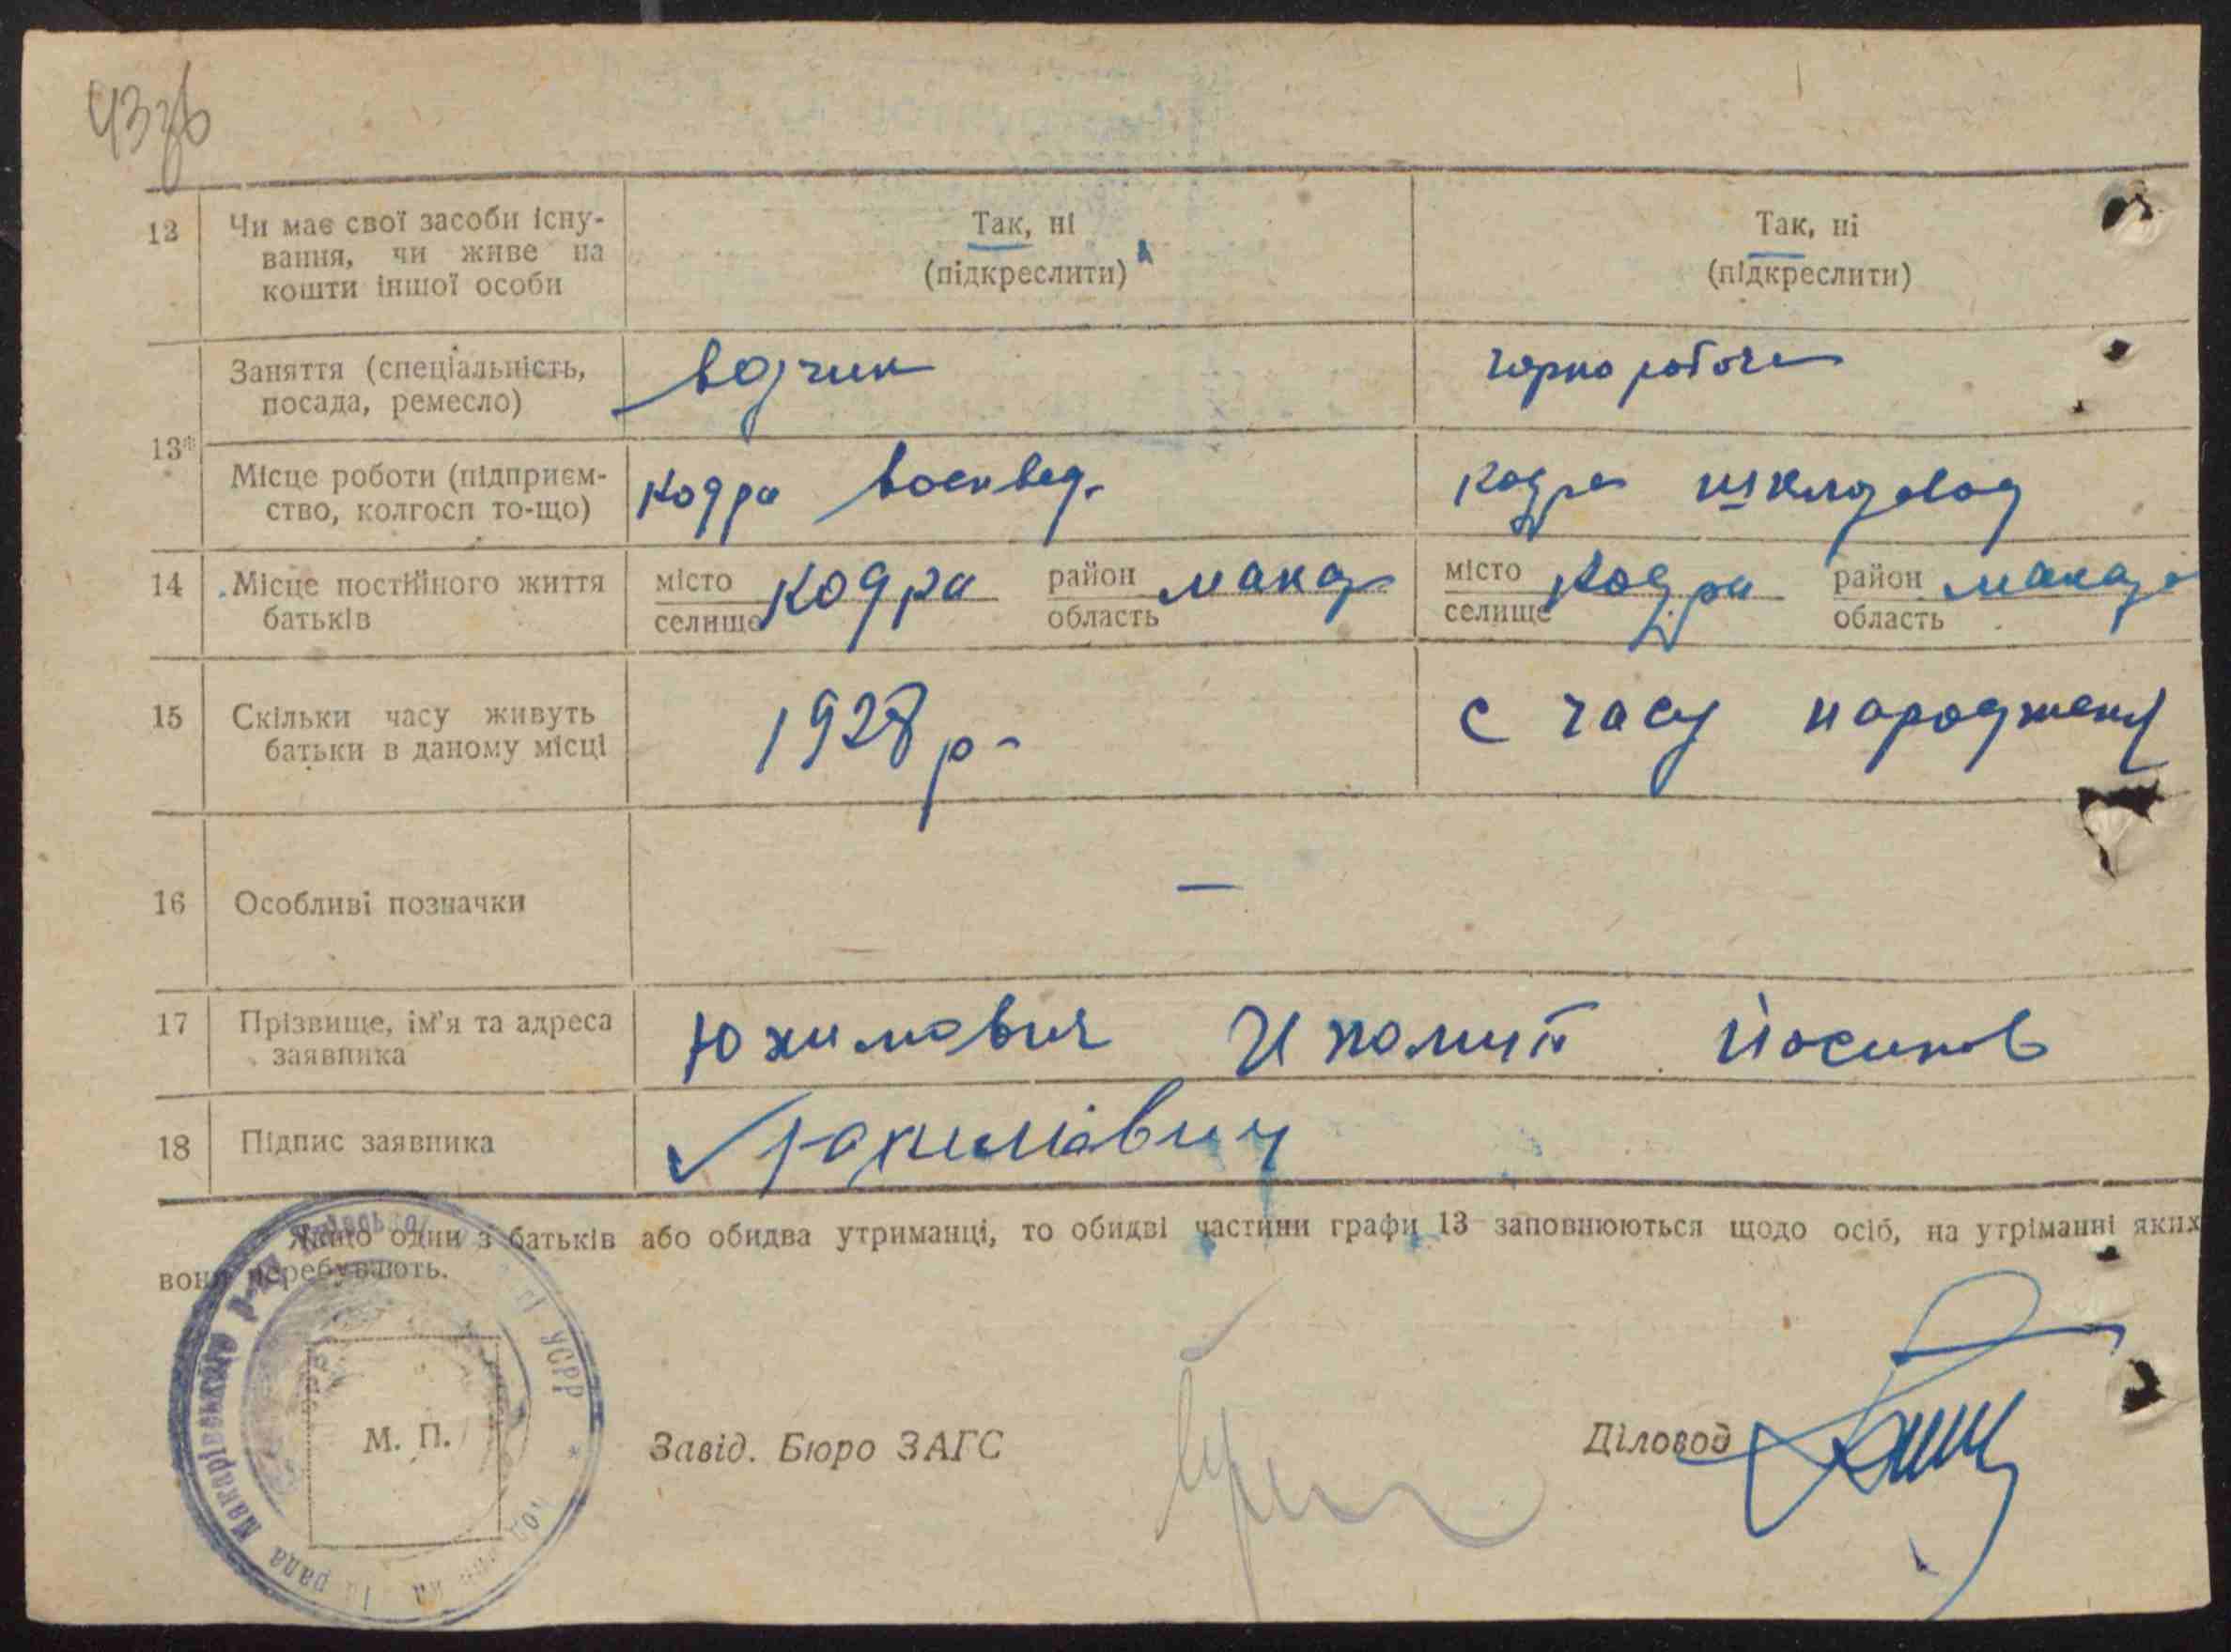 43зв
12 Чи має свої засоби існу-
вання, чи живе на
кошти іншої особи
Так, ні
(підкреслити)
Так, ні
(підкреслити)
13*
Заняття (спеціальність,
посада, ремесло)
чорноробоча
Місце роботи (підприєм-
ство, колгосп то-що)
Кодра военвед.
Кодра шклозавод
14 Місце постійного життя
батьків
місто
селище
Кодра
район
область
макар
місто
селище
Кодра
район
область
макар
15 Скільки часу живуть
батьки в даному місці
1928 р.
с часу народжену
16 Особливі позначки
—
17 Прізвище, ім'я та адреса
заявника
Юхимович Иполит Йосипов
18 Підпис заявника
Юхимович
Якщо один з батьків або обидва утриманці, то обидві частини графи 13 заповнюються щодо осіб, на утріманні яких
вони перебувають.
Макарівського р-ну
УСРР
рада
М. П.
Завід. Бюро ЗАГС
Діловод